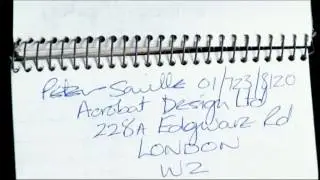 Peter Saville 01/723/8120
Acrobat Design Ltd
228A Edgware Rd
LONDON
W2